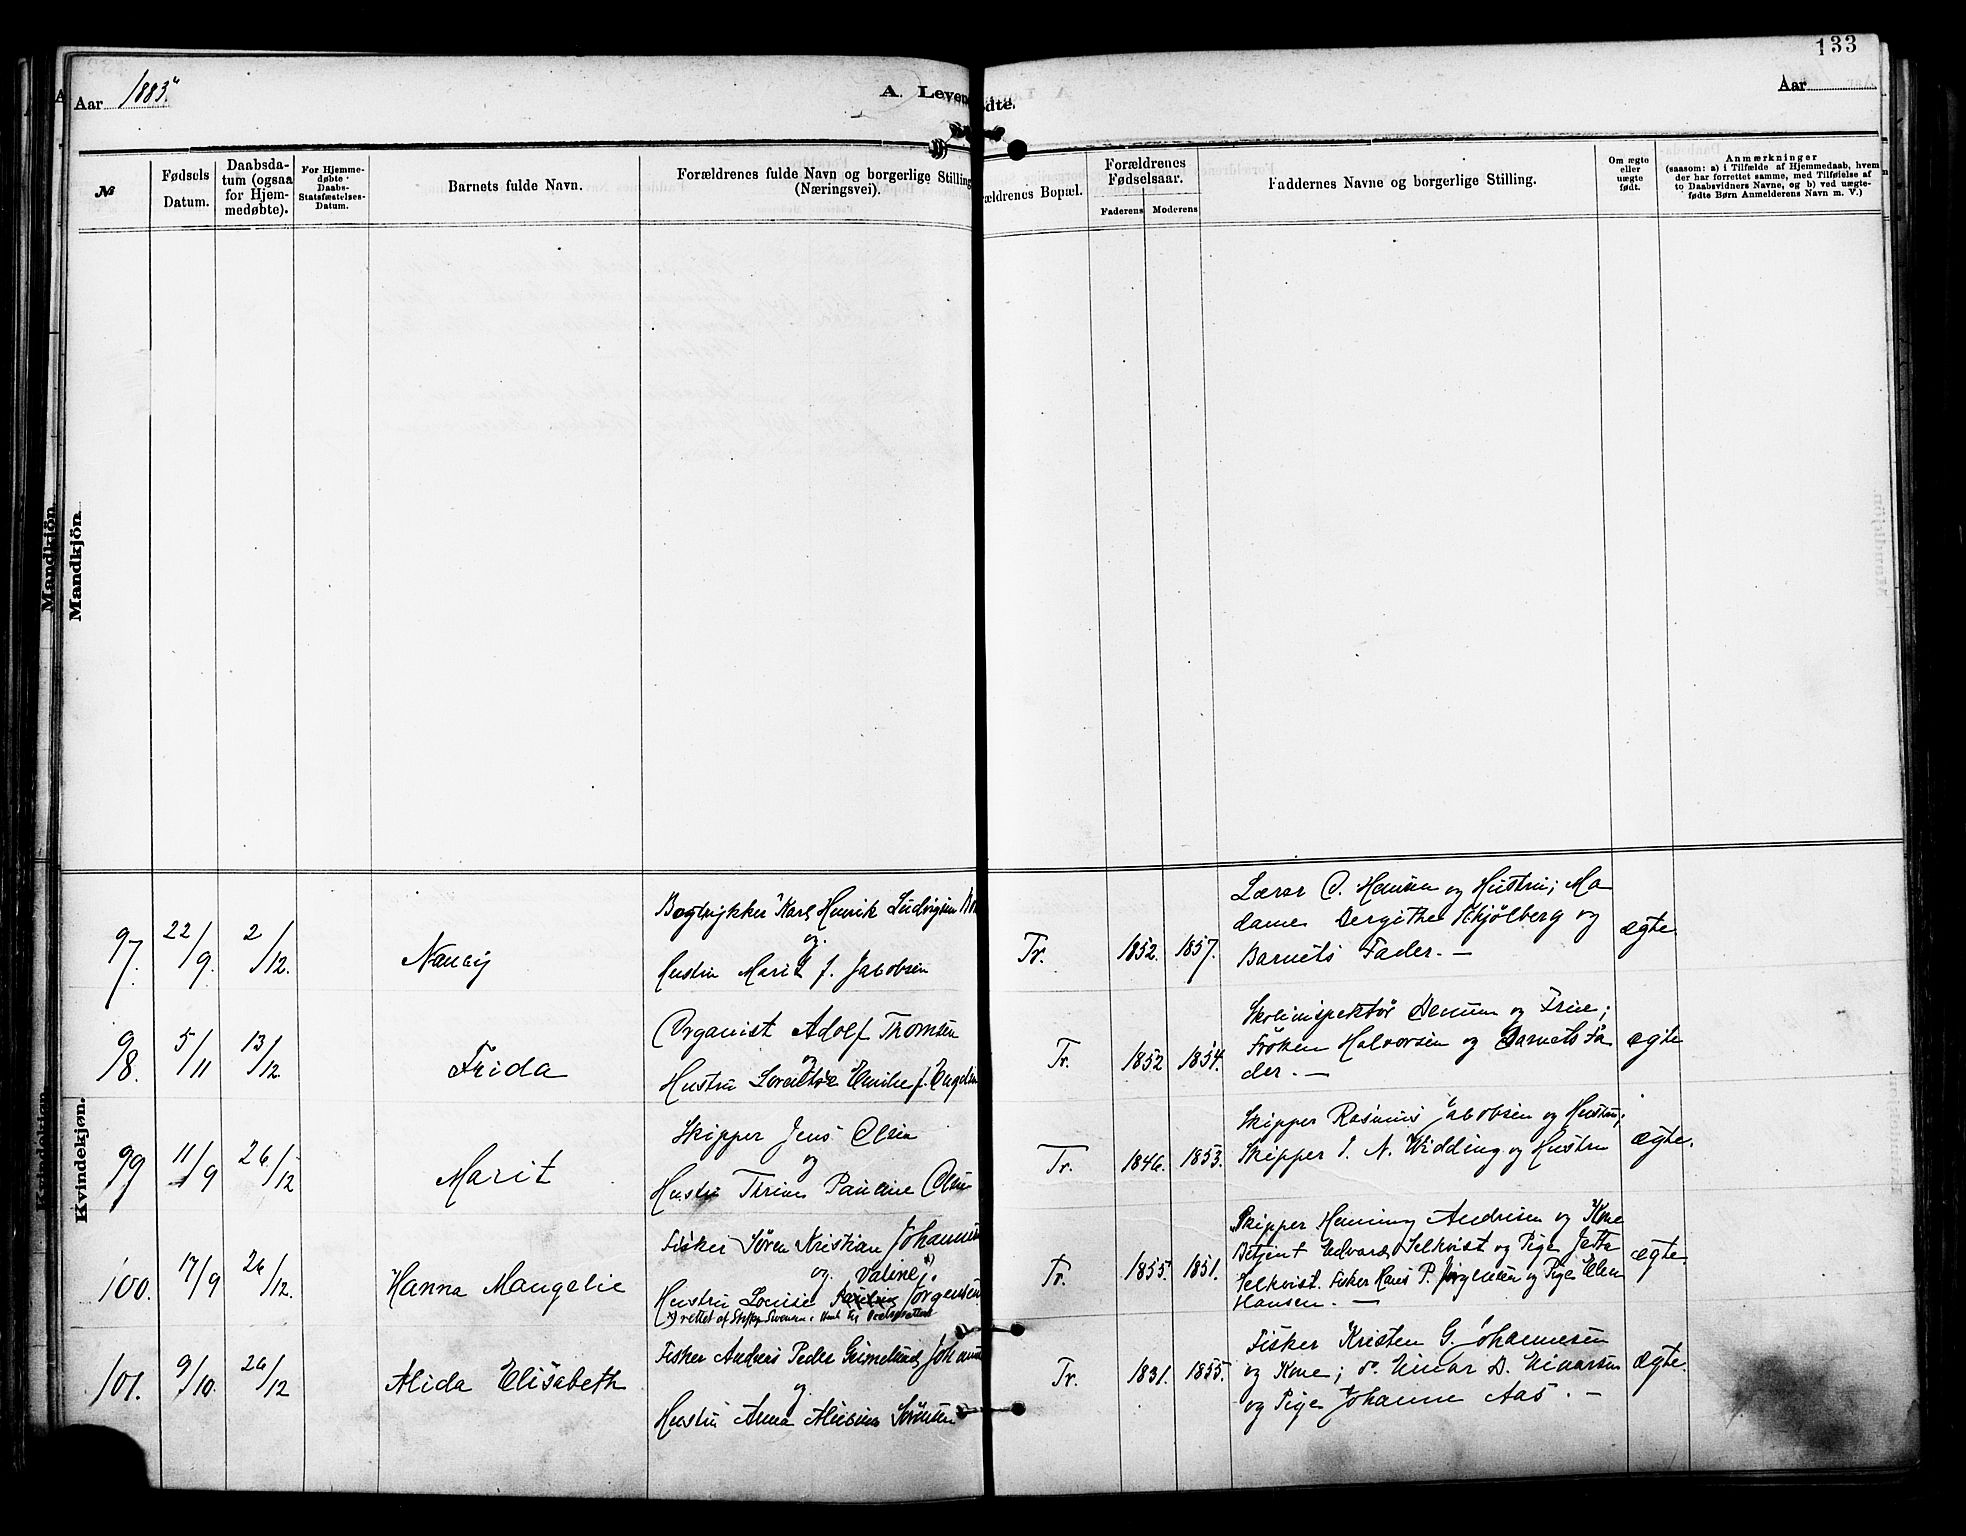 133
Aar 1883.
A. Levendødte.
Aar
№
Fødsels Datum.
Daabsdatum (ogsaa for Hjemmedøbte).
For Hjemmedøbte Daabs-Statsfæstelses-Datum.
Barnets fulde Navn.
Forældrenes fulde Navn og borgerlige Stilling (Næringsvei).
ældrenes Bopæl.
Forældrenes Fødselsaar.
Faderens
Moderens
Faddernes Navne og borgerlige Stilling.
Om ægte eller uægte født.
Anmærkninger
(saasom: a) i Tilfælde af Hjemmedaab, hvem
der har forrettet samme, med Tilføielse af
to Daabsvidners Navne, og b) ved uægte-
fødte Børn Anmelderens Navn m. V.)
Mandkjön.
Kvindekjøn.
97. 22/9. 2/12. Nancy
Bogtrykker Karl Henrik Ludvigsen
og
Hustru Marit f. Jacobsen
Tr. 1852. 1857.
Lærer O. Hansen og Hustru; Ma
dame Bergithe Kjølberg og
Barnets Fader. —
ægte.
98. 5/11 13/12 Frida
Organist Adolf Thomsen
og
Hustru Emilie f.
Tr. 1852 1854.
Skoleinspektør og Frue;
Frøken Halvorsen og Barnets Fa
der. —
ægte
99 11/9 26/12 Marit
Skipper Jens Olsen
og
Hustru Pauline Olsen
Tr. 1846. 1853.
Skipper Rasmus Jacobsen og Hustru;
Skipper I. N. Widding og Hustru
ægte.
100. 17/9 26/12. Hanna Mangelie
Fisker Søren Kristian
og Valine
Hustru Louise Jørgensen
rettet af
Tr. 1855. 1851.
Skipper Henning Andresen og Kone
Betjent Edvard Selkvist og Pige Jette
Selkvist. Fisker Hans P. og Pige Ellen
Hansen. —
ægte.
101. 9/10. 26/12 Alida Elisabeth
Fisker Anders Peder
og
Hustru Anna Sørensen
Tr. 1831. 1855.
Fisker Kristen G. Johannesen
og Kone; do. Einar D. Einarsen
og Pige Johanne Aas. —
ægte.